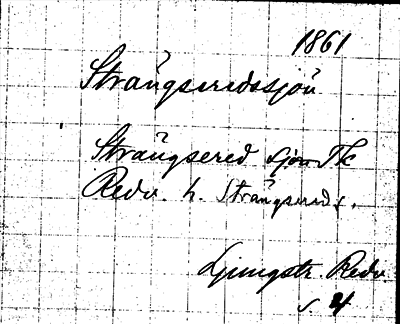 1861
Strängseredssjön
Strängsered sjön Tk
Redv. h. Strängsereds.
Ljungstr. Redv
s 4